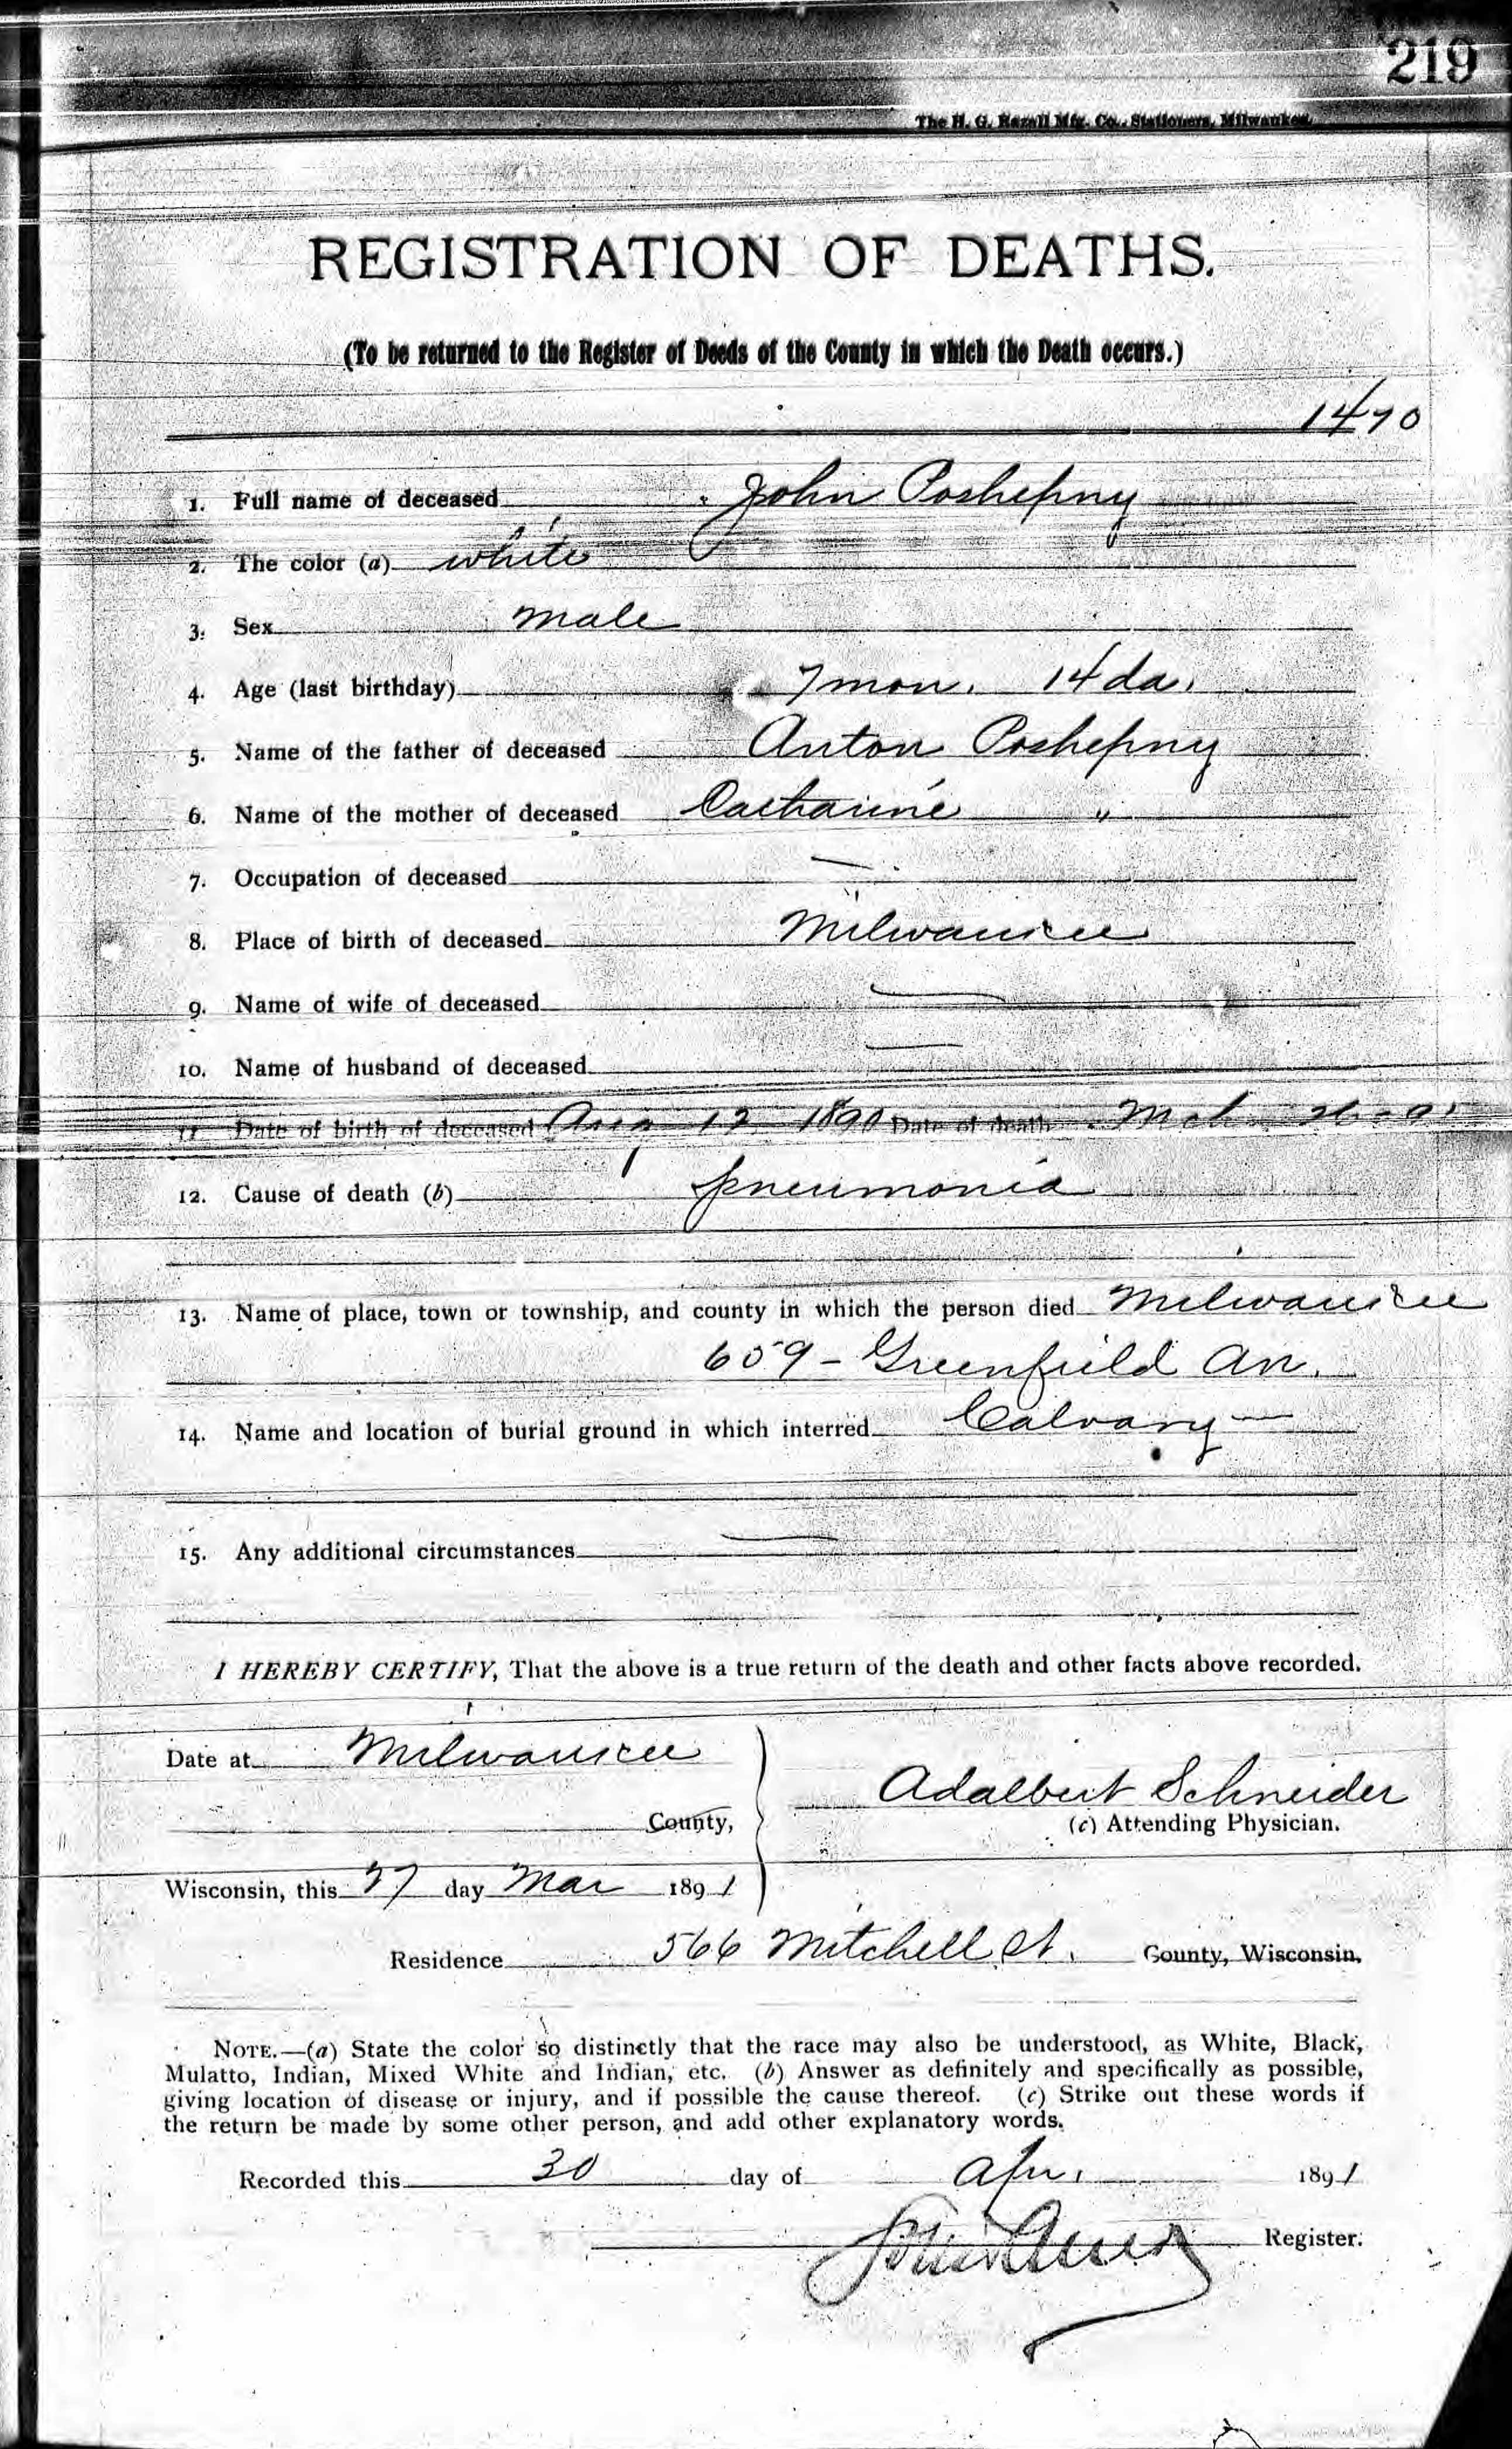 219
The H. G. Razall Mfg. Co., Stationers, Milwaukee.
REGISTRATION OF DEATHS.
(To be returned to the Register of Deeds of the County in which the Death occurs.)
1470
1. Full name of deceased John Poshepny
2. The color (a) white
3. Sex male
4. Age (last birthday) 7 mon. 14 da.
5. Name of the father of deceased Anton Poshepny
6. Name of the mother of deceased Catharine "
7. Occupation of deceased —
8. Place of birth of deceased Milwaukee
9. Name of wife of deceased —
10. Name of husband of deceased —
11. Date of birth of deceased Aug 12 1890 Date of death Mch 26-91
12. Cause of death (b) pneumonia
13. Name of place, town or township, and county in which the person died Milwaukee
659 - Greenfield Av.
14. Name and location of burial ground in which interred Calvary —
15. Any additional circumstances —
I HEREBY CERTIFY, That the above is a true return of the death and other facts above recorded.
Date at Milwaukee
County,
Adalbert Schneider
(c) Attending Physician.
Wisconsin, this 27 day Mar 1891
Residence 566 Mitchell St. County, Wisconsin.
NOTE.—(a) State the color so distinctly that the race may also be understood, as White, Black,
Mulatto, Indian, Mixed White and Indian, etc. (b) Answer as definitely and specifically as possible,
giving location of disease or injury, and if possible the cause thereof. (c) Strike out these words if
the return be made by some other person, and add other explanatory words.
Recorded this 30 day of Apr. 1891
Register.